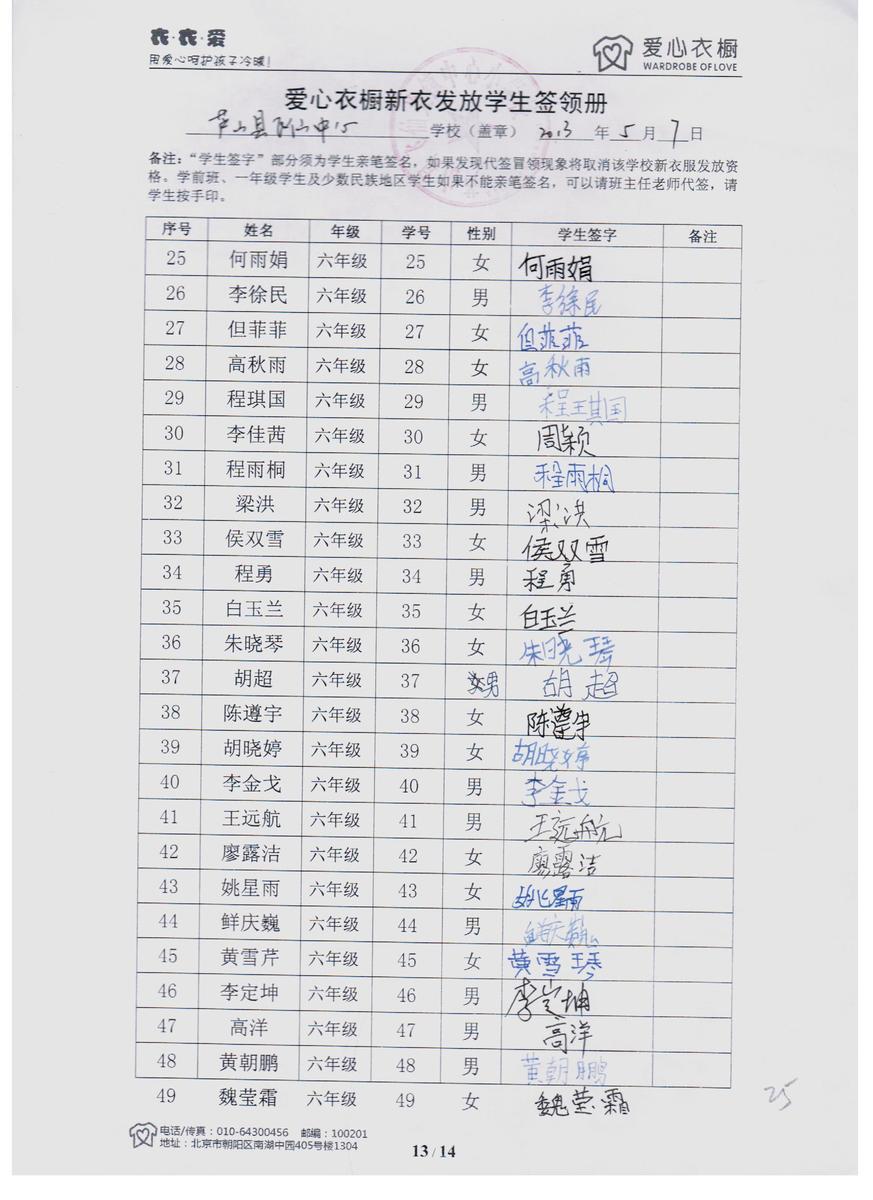 衣·衣·爱
用爱心呵护孩子冷暖!
爱心衣橱
WARDROBE OF LOVE
爱心衣橱新衣发放学生签领册
芦山县 中心 学校（盖章） 2013 年 5 月 7 日
备注："学生签字"部分须为学生亲笔签名，如果发现代签冒领现象将取消该学校新衣服发放资
格。学前班、一年级学生及少数民族地区学生如果不能亲笔签名，可以请班主任老师代签，请
学生按手印。
序号 姓名 年级 学号 性别 学生签字 备注
25 何雨娟 六年级 25 女 何雨娟
26 李徐民 六年级 26 男 李徐民
27 但菲菲 六年级 27 女 但菲菲
28 高秋雨 六年级 28 女 高秋雨
29 程琪国 六年级 29 男 程琪国
30 李佳茜 六年级 30 女 周颖
31 程雨桐 六年级 31 男 程雨桐
32 梁洪 六年级 32 男 梁洪
33 侯双雪 六年级 33 女 侯双雪
34 程勇 六年级 34 男 程勇
35 白玉兰 六年级 35 女 白玉兰
36 朱晓琴 六年级 36 女 朱晓琴
37 胡超 六年级 37 女男 胡超
38 陈遵宇 六年级 38 女 陈遵宇
39 胡晓婷 六年级 39 女 胡晓婷
40 李金戈 六年级 40 男 李金戈
41 王远航 六年级 41 男 王远航
42 廖露洁 六年级 42 女 廖露洁
43 姚星雨 六年级 43 女 姚星雨
44 鲜庆巍 六年级 44 男 鲜庆巍
45 黄雪芹 六年级 45 女 黄雪琴
46 李定坤 六年级 46 男 李定坤
47 高洋 六年级 47 男 高洋
48 黄朝鹏 六年级 48 男 黄朝鹏
49 魏莹霜 六年级 49 女 魏莹霜
25
电话/传真：010-64300456 邮编：100201
地址：北京市朝阳区南湖中园405号楼1304
13 / 14